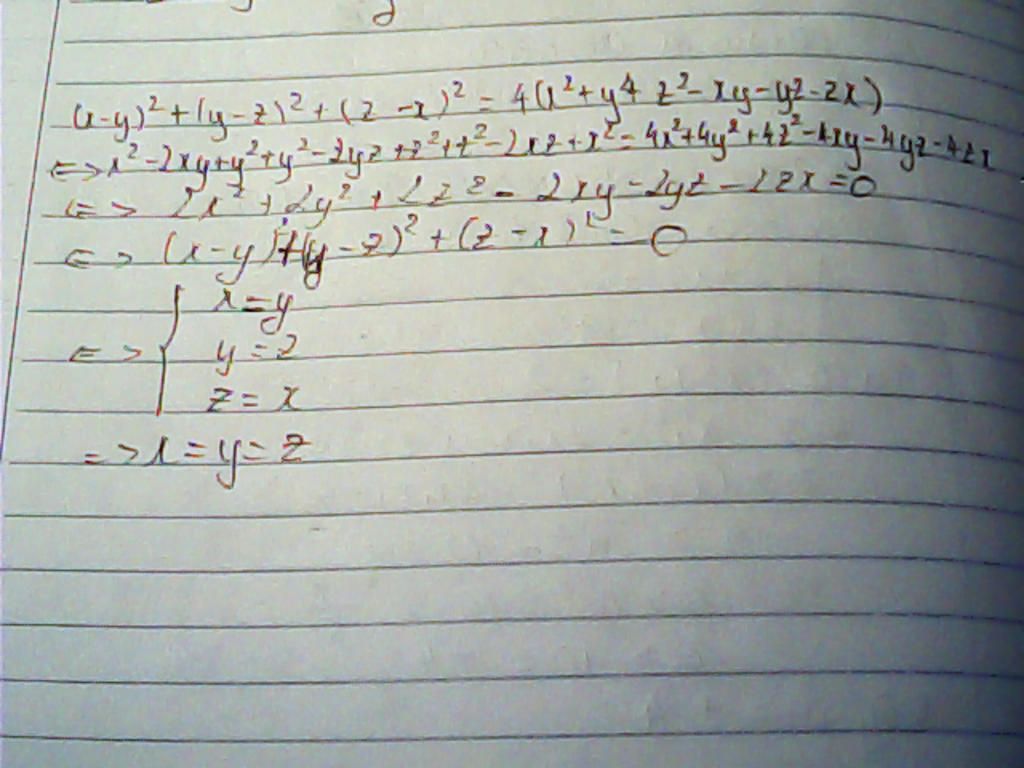 (x-y)²+(y-z)²+(z-x)²=4(x²+y4 z²-xy-yz-zx)
<=>x²-2xy+y²+y²-2yz+z²+z²-2xz+x²=4x²+4y²+4z²-4xy-4yz-4zx
<=> 2x²+2y²+2z²-2xy-2yz-2zx=0
<=> (x-y)²+(y-z)²+(z-x)²=0
x=y
<=> { y=z
z=x
=>x=y=z